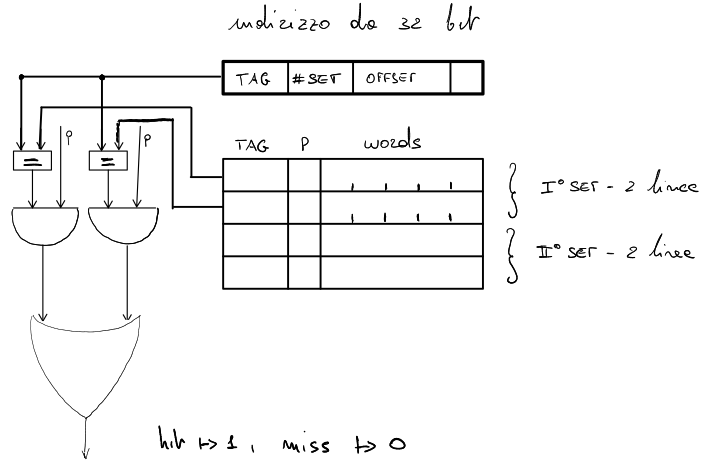 indirizzo da 32 bit
TAG #SET OFFSET
TAG P words
P P
= =
I° SET - 2 linee
II° SET - 2 linee
hit ↦ 1, miss ↦ 0